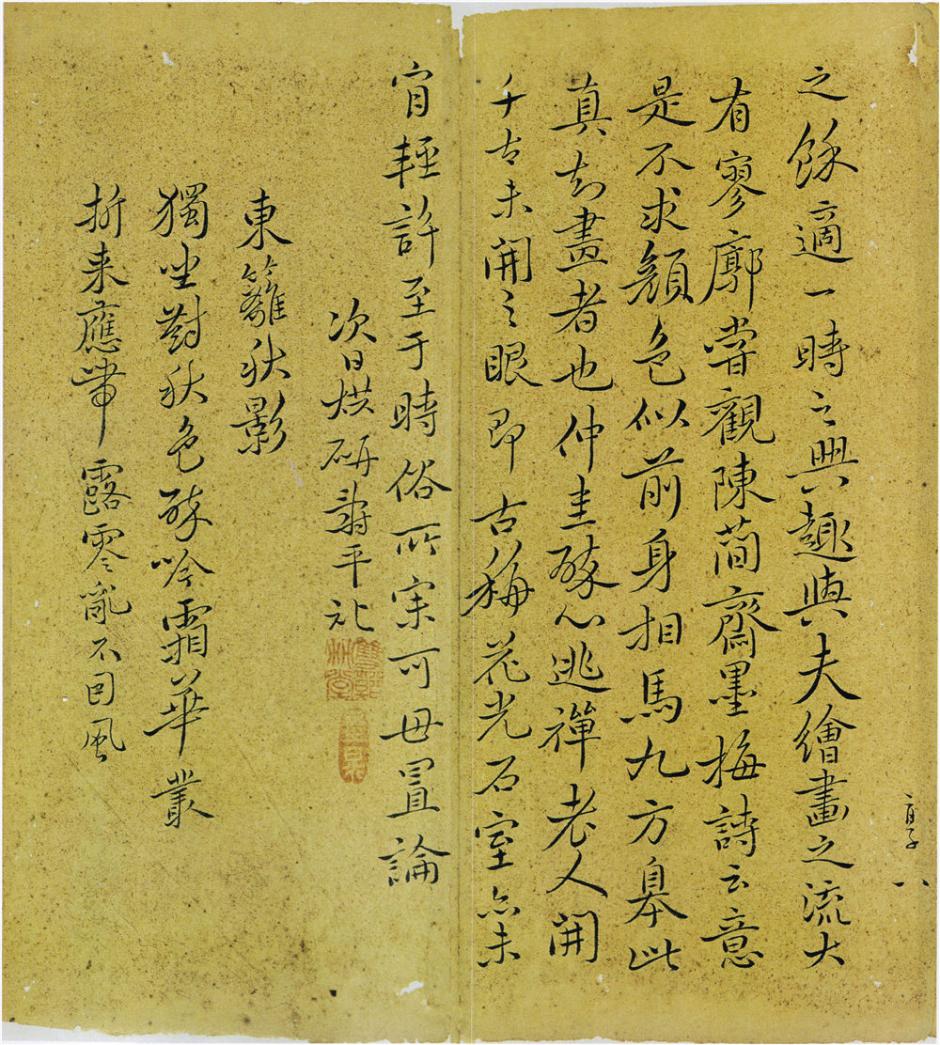 八
之餘適一時之興趣與夫繪畫之流大
有寥廓嘗觀陳簡齋墨梅詩云意
是不求顏色似前身相馬九方皋此
真知畫者也仲圭醉心逃禪老人開
千古未開之眼即古梅花光石室亦未
肯輕許至于時俗所宗可毋置論
次日烘研壽平記
東籬秋影
獨坐對秋色醉吟霜華叢
折来應帶露零亂不因風